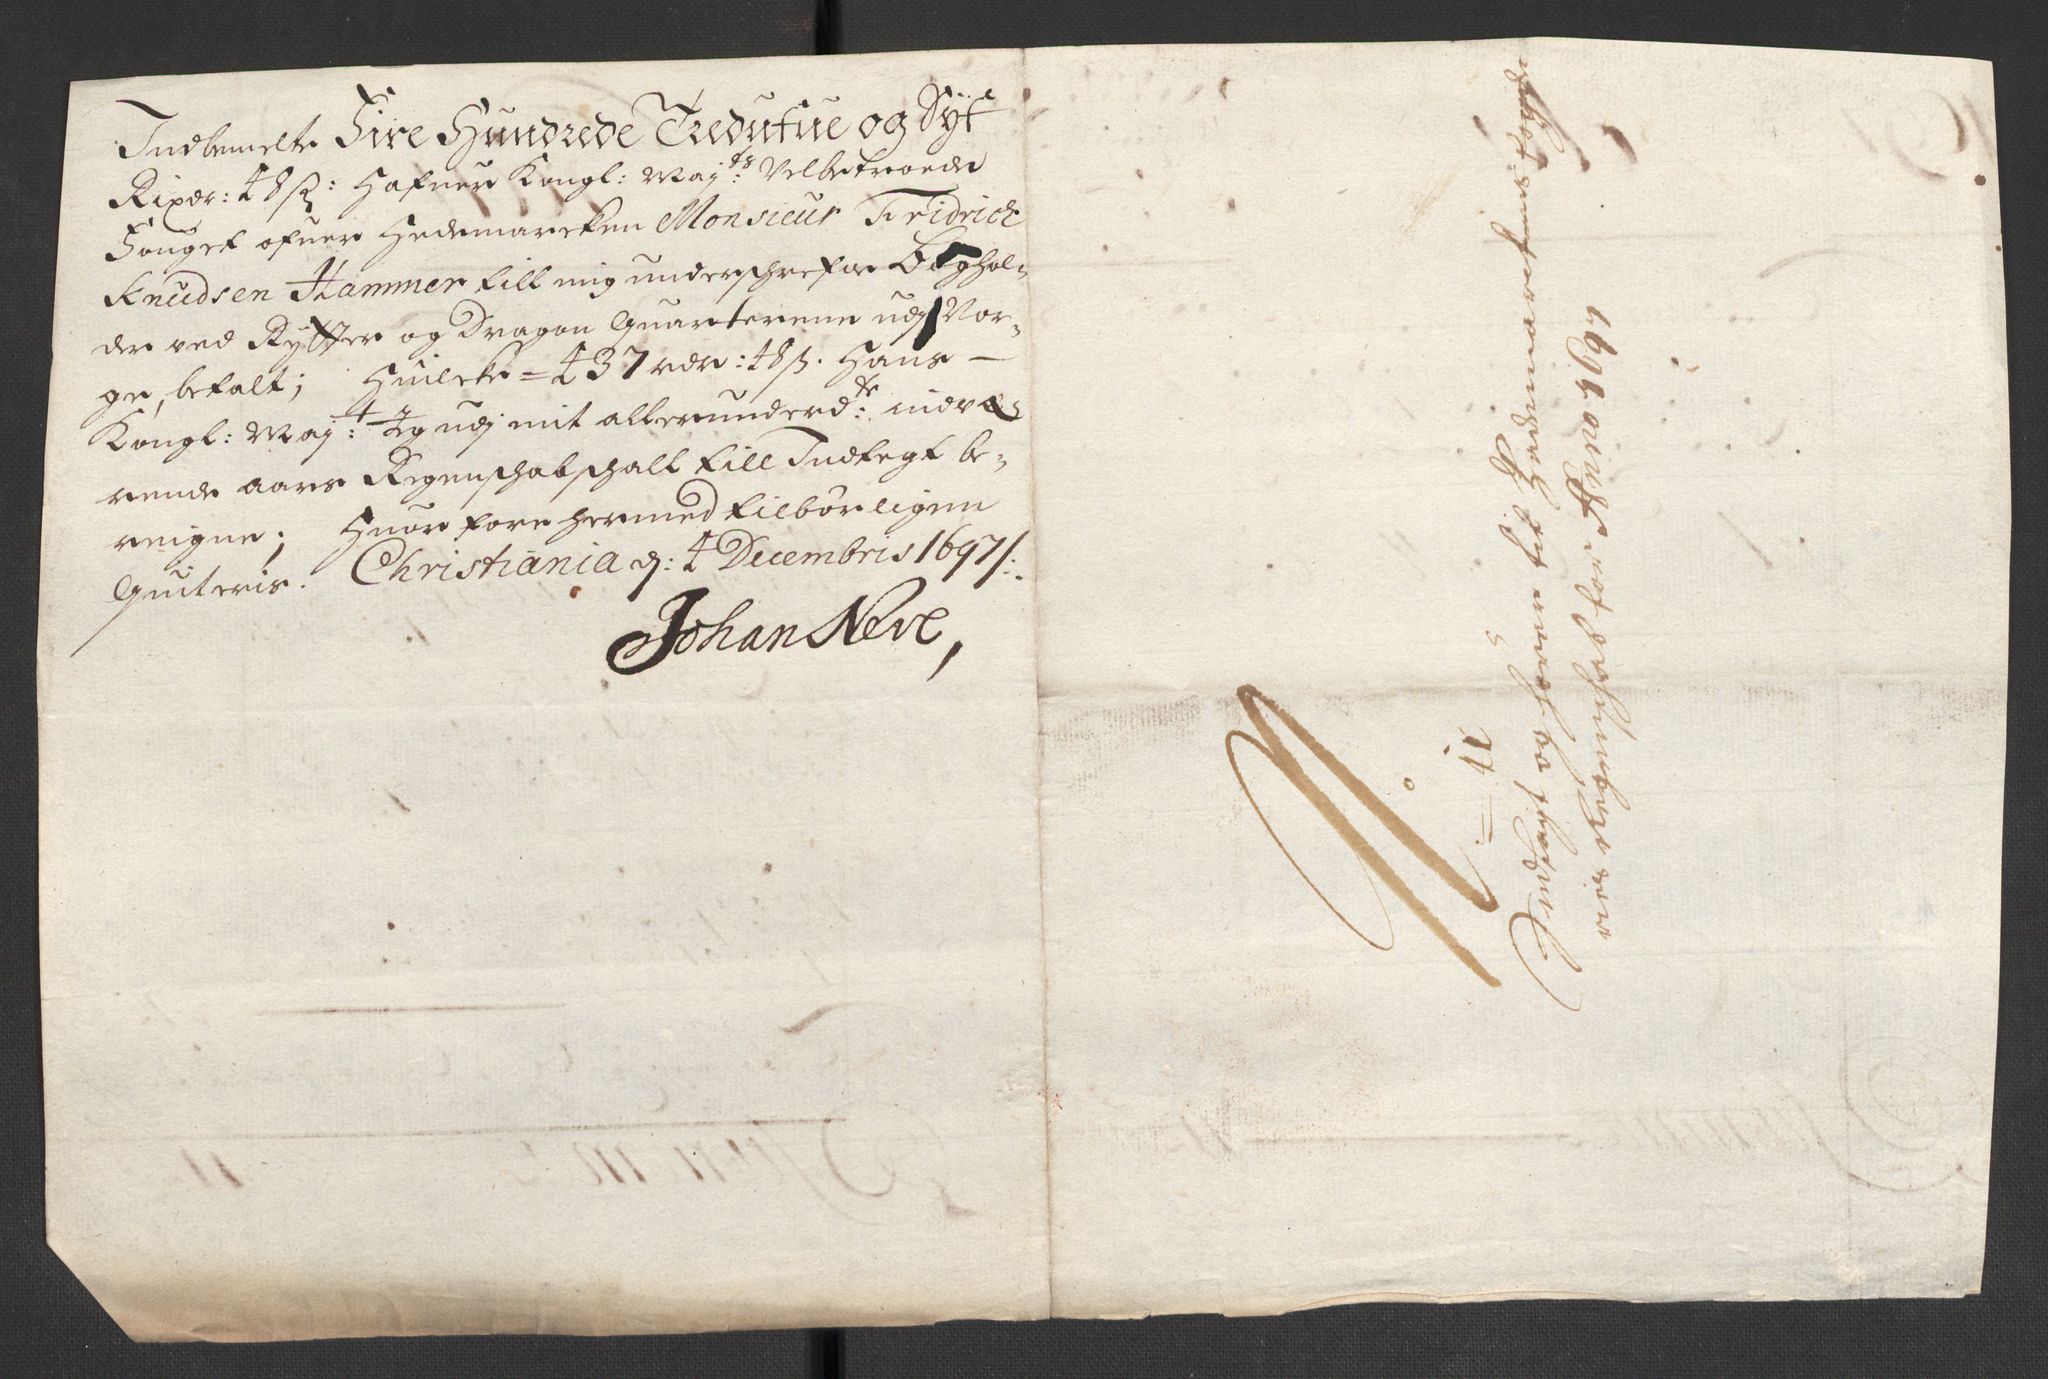 Indbemelte Fire Hundrede Tredufue og Syf
Rixdr: 48 ß: Hafuer Kongl: Maj:ts Velbetroede
Fouget ofuer Hedemarcken Monsieur Fridrich
Knudsen Hammer till mig underschrefne Boghol-
der ved Rytter og Dragon Quarterene udj Nor-
ge, betalt; Huilcke = 437 rdr: 48 ß. Hans
Kongl: Maj:t udj mit allerunderd:te nidvæ-
rende aars Regenschab schall till Indtegt be-
reigne; Huorfore hermed tilbørligen
Quiteris. Christiania d: 4 Decembris 1697/:.
Johan Neve,
N.
Indtegt og hører til Hedemarckens fogde-
ries Regenschab for Anno 1697